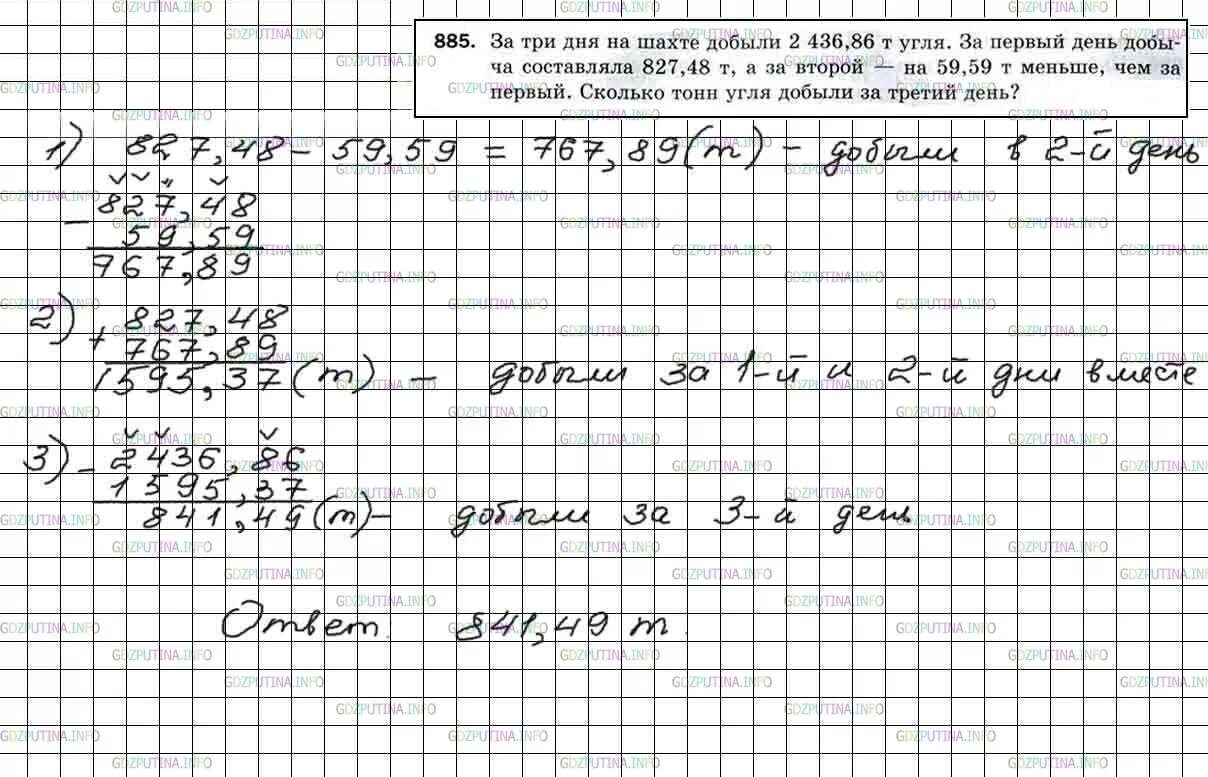 885. За три дня на шахте добыли 2 436,86 т угля. За первый день добы-
ча составляла 827,48 т, а за второй — на 59,59 т меньше, чем за
первый. Сколько тонн угля добыли за третий день?
1) 827,48 - 59,59 = 767,89 (т) - добыли в 2-й день
- 827,48
59,59
767,89
2) + 827,48
767,89
1595,37 (т) - добыли за 1-й и 2-й дни вместе
3) - 2436,86
1595,37
841,49 (т) - добыли за 3-й день
Ответ: 841,49 т.
GDZPUTINA.INFO